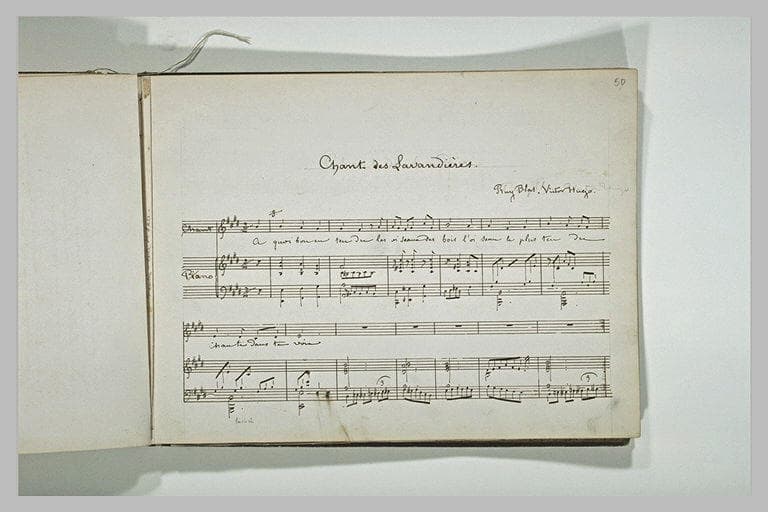 50
Chant des Lavandières.
Ruy Blas. Victor Hugo.
Chant
A quoi bon en ten dre les oi seaux des bois l'oi seau le plus ten dre
Piano
chante dans ta voix
3
3